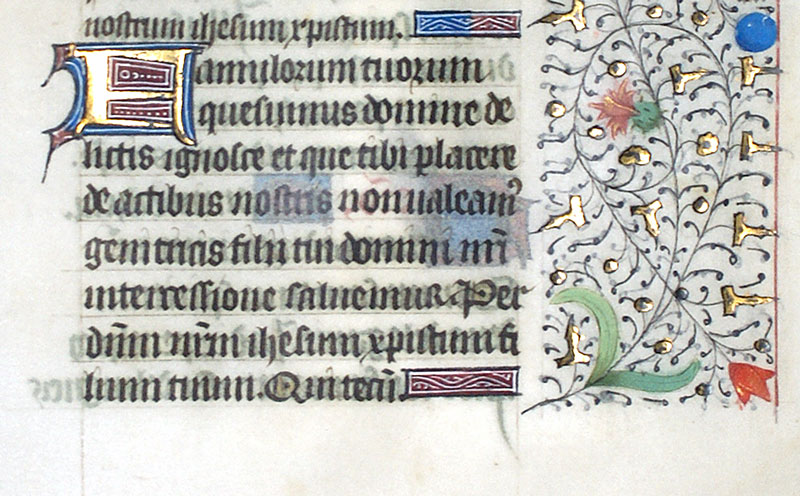 nostrum ihesum xpistum.
Famulorum tuorum
quesumus domine de
lictis ignosce et que tibi placere
de actibus nostris non ualeamꝰ
genitricis filii tui domini nr̄i
intercessione saluemur. Per
dn̄m nr̄m ihesum xpistum fi
lium tuum. Qui tecū